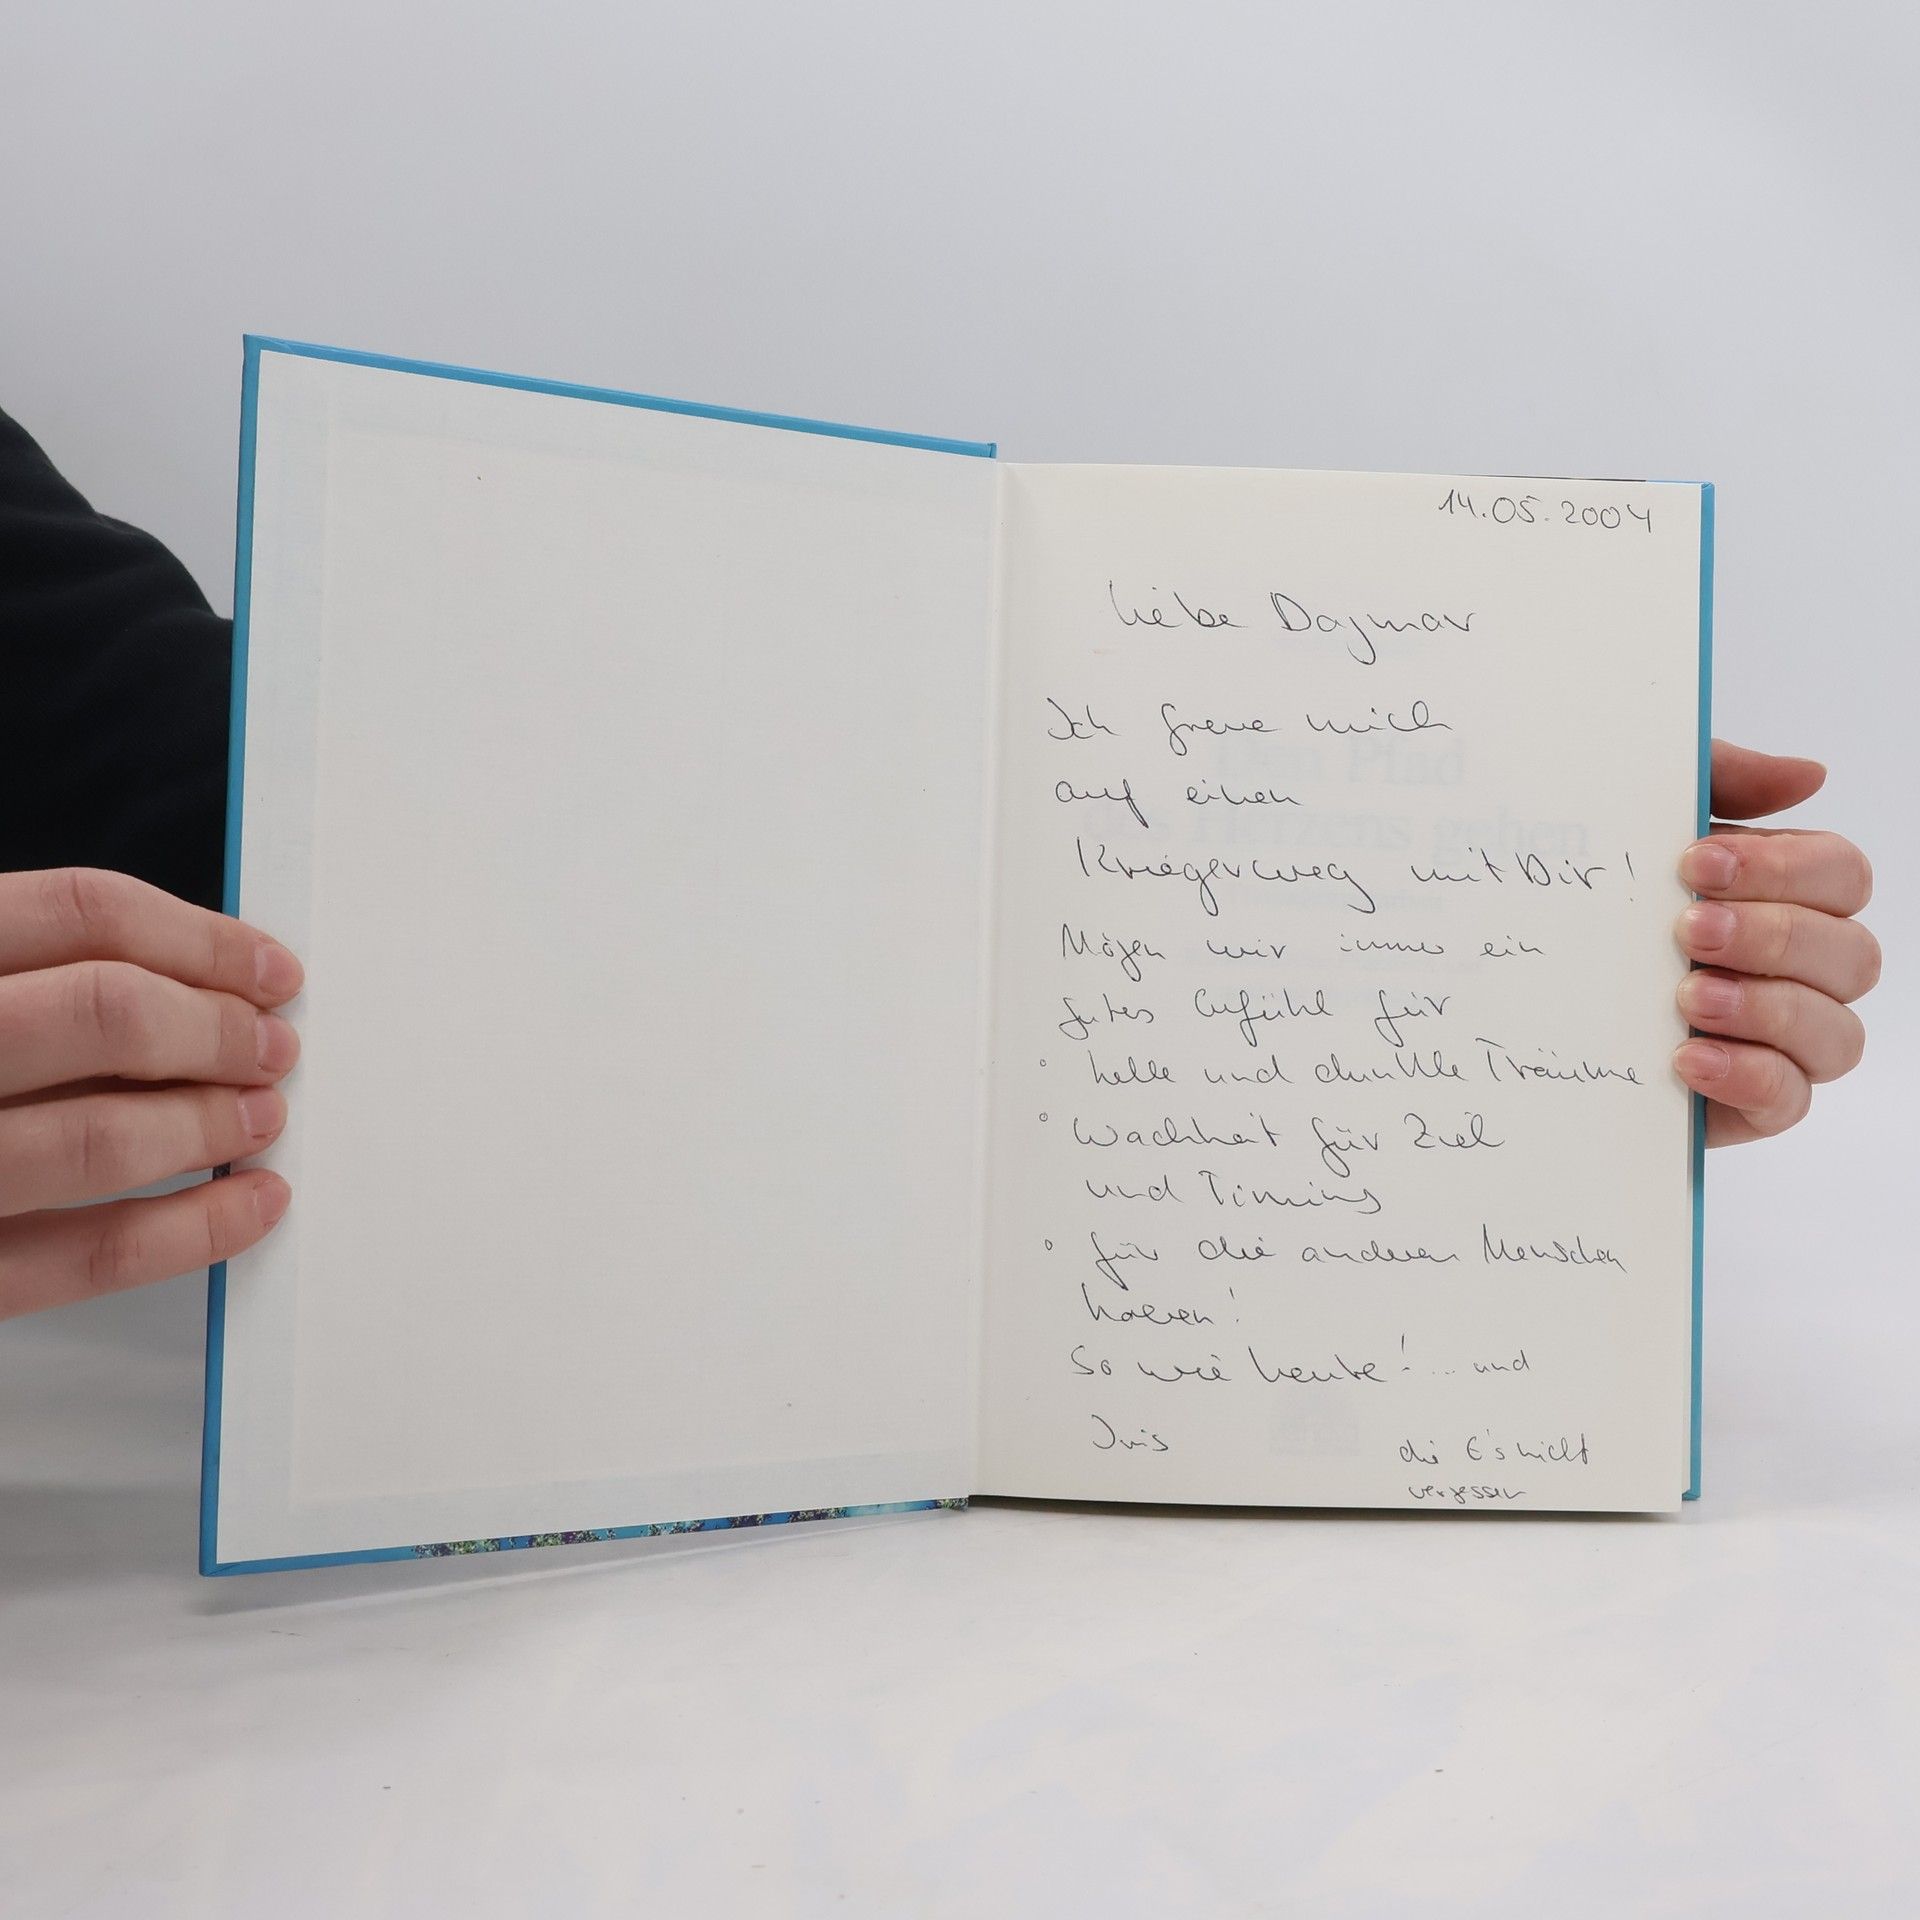 14.05.2004
Liebe Dagmar
Ich freue mich
auf einen
Kriegerweg mit Dir!
Mögen wir immer ein
gutes Gefühl für
° helle und dunkle Träume
° Wachheit für Ziel
und Timing
° für die anderen Menschen
haben!
So wie heute! ... und
die E's nicht
vergessen
den Pfad
des Herzens gehen